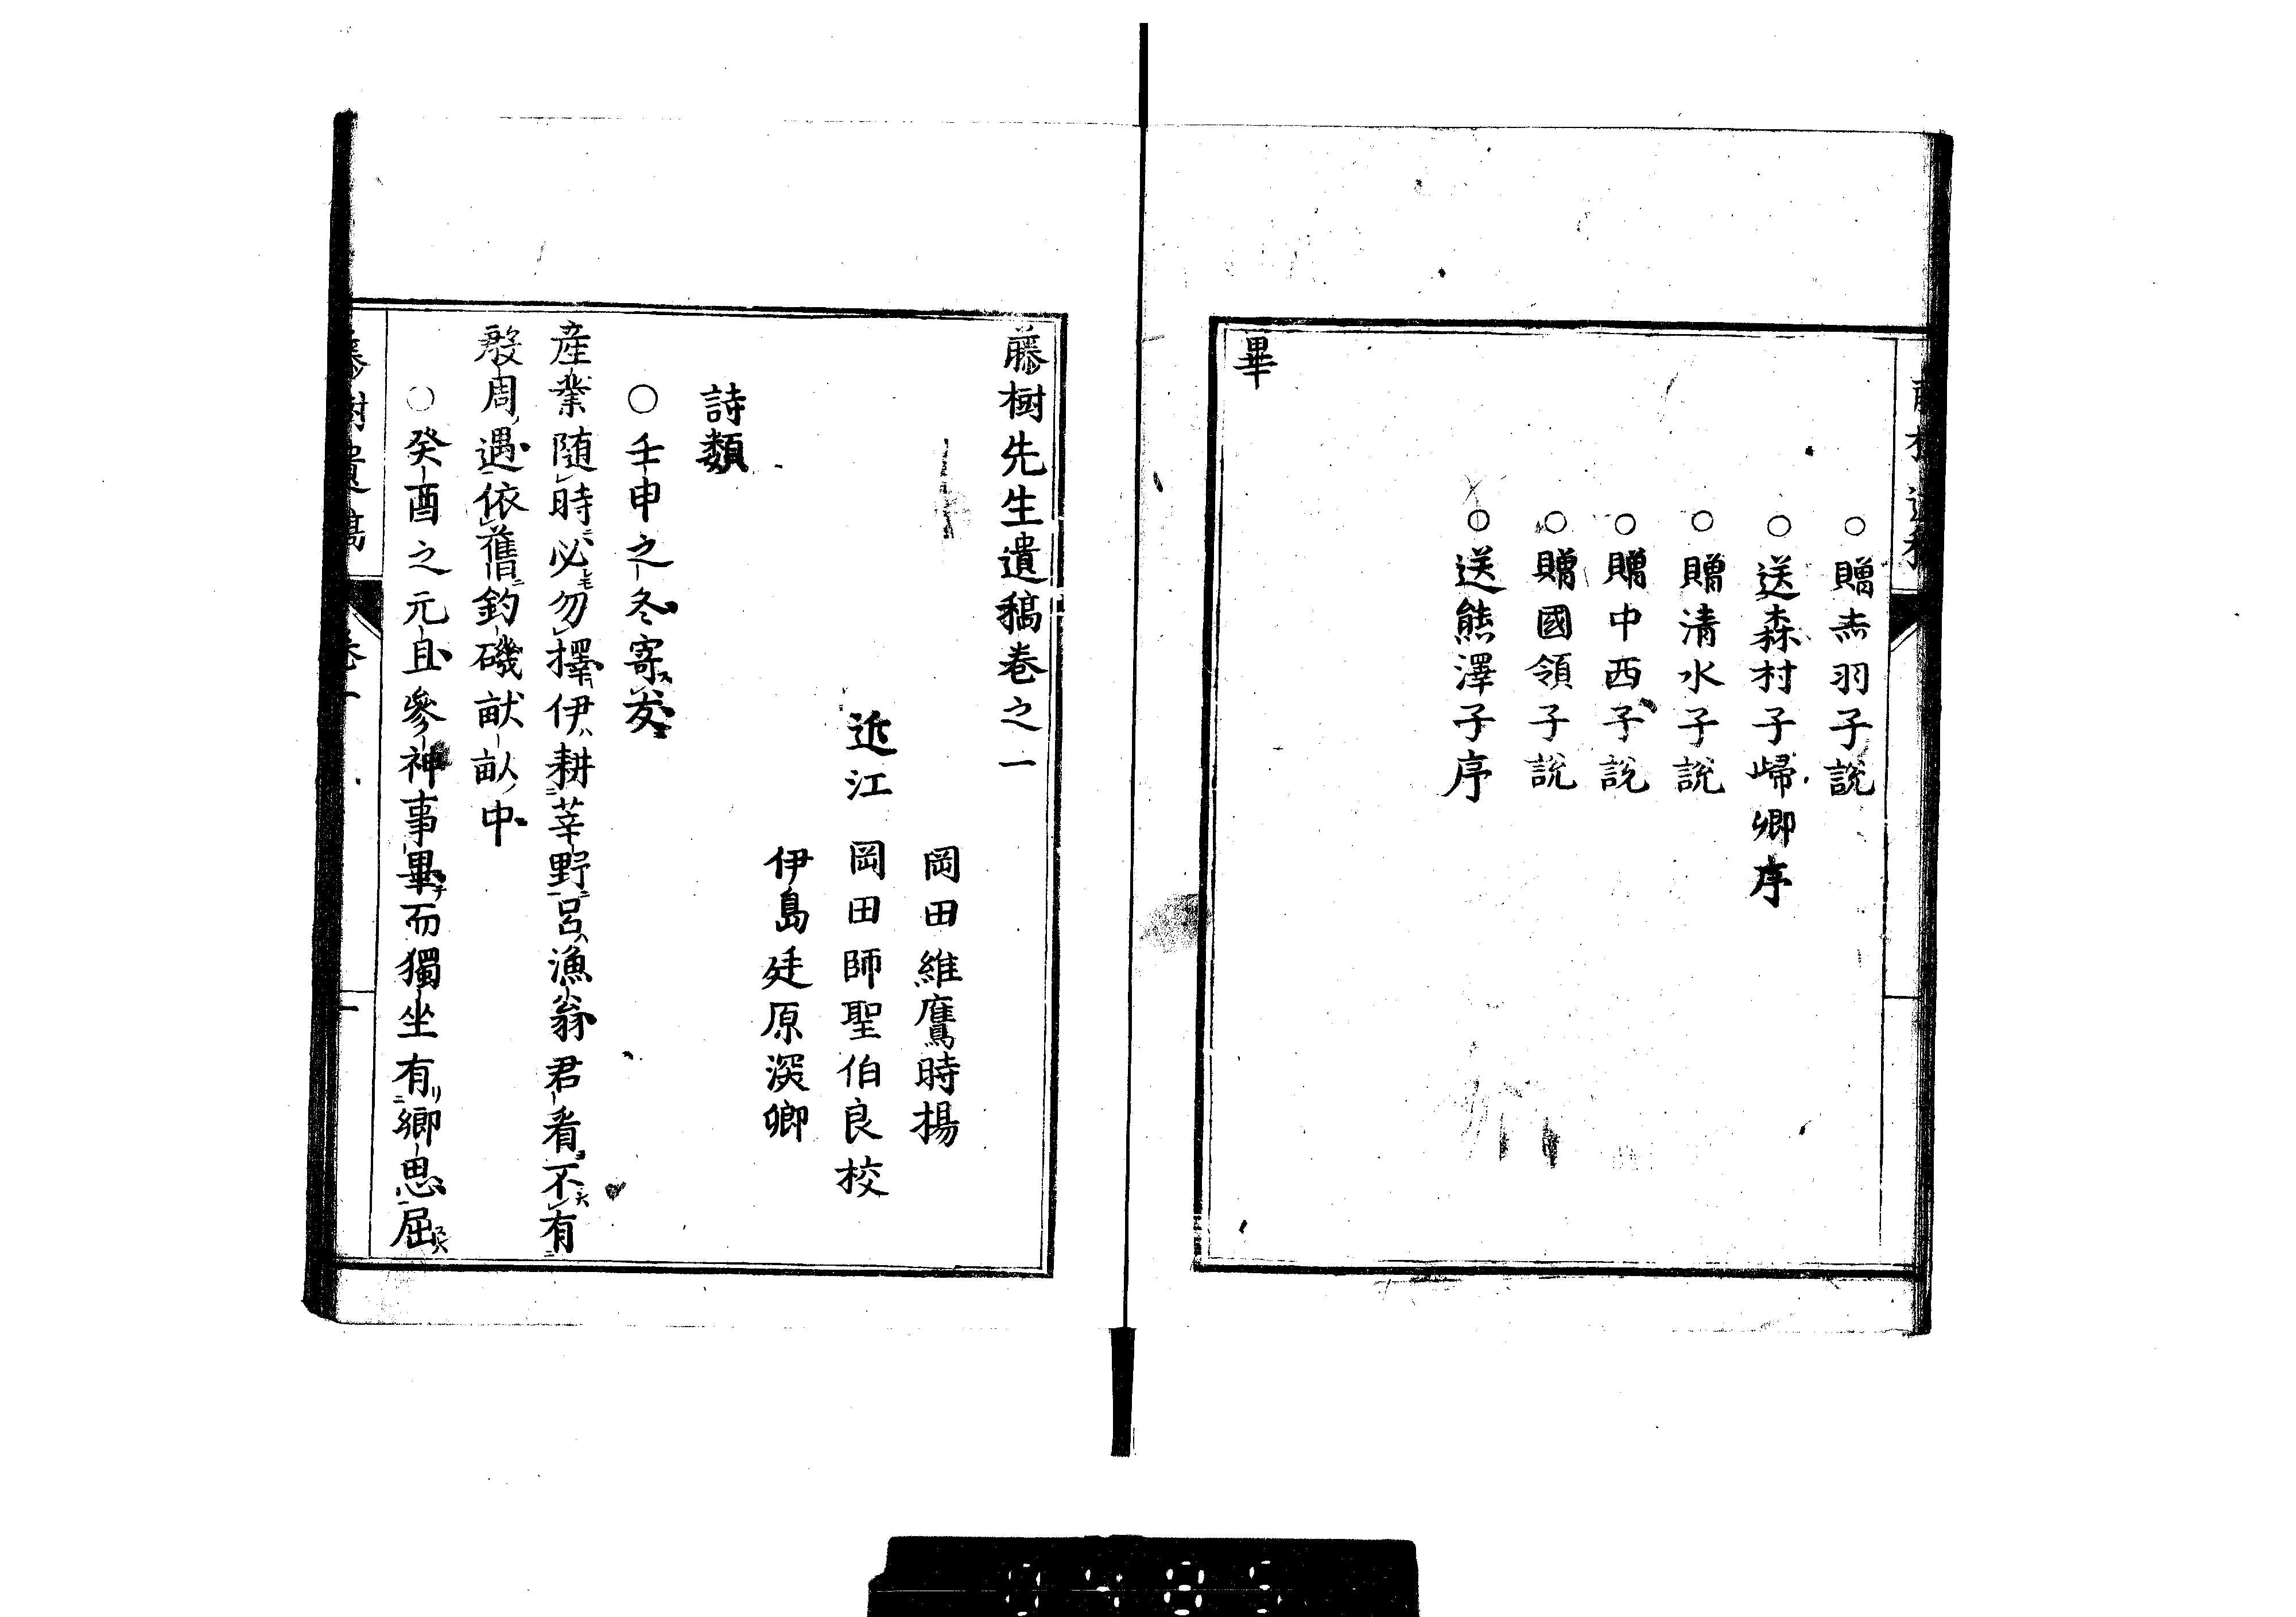 ○贈赤羽子說
○送森村子歸卿序
○贈清水子說
○贈中西子說
○贈國領子說
○送熊澤子序
畢
藤樹先生遺稿卷之一
岡田維鷹時揚
近江 岡田師聖伯良校
伊島廷原深卿
詩類
○壬申之冬寄友
產業随時必勿擇伊耕莘野呂漁翁君看不有
殷周遇依舊釣磯畎畝中
○癸酉之元旦參神事畢而獨坐有鄉思屈
藤樹遺稿 卷一 一